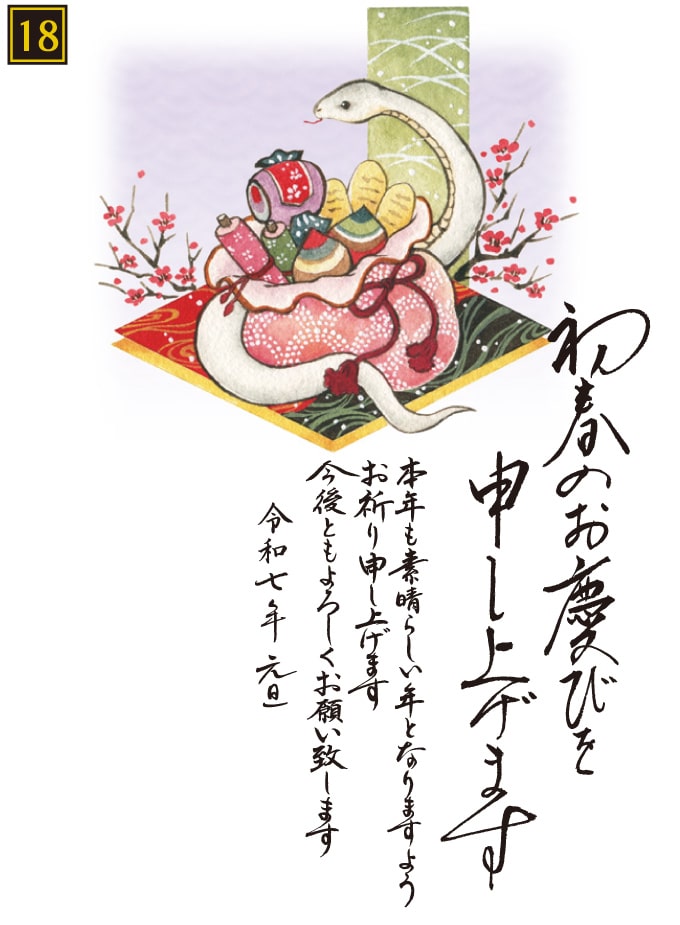 18
初春のお慶びを
申し上げます
本年も素晴らしい年となりますよう
お祈り申し上げます
今後ともよろしくお願い致します
令和七年 元旦